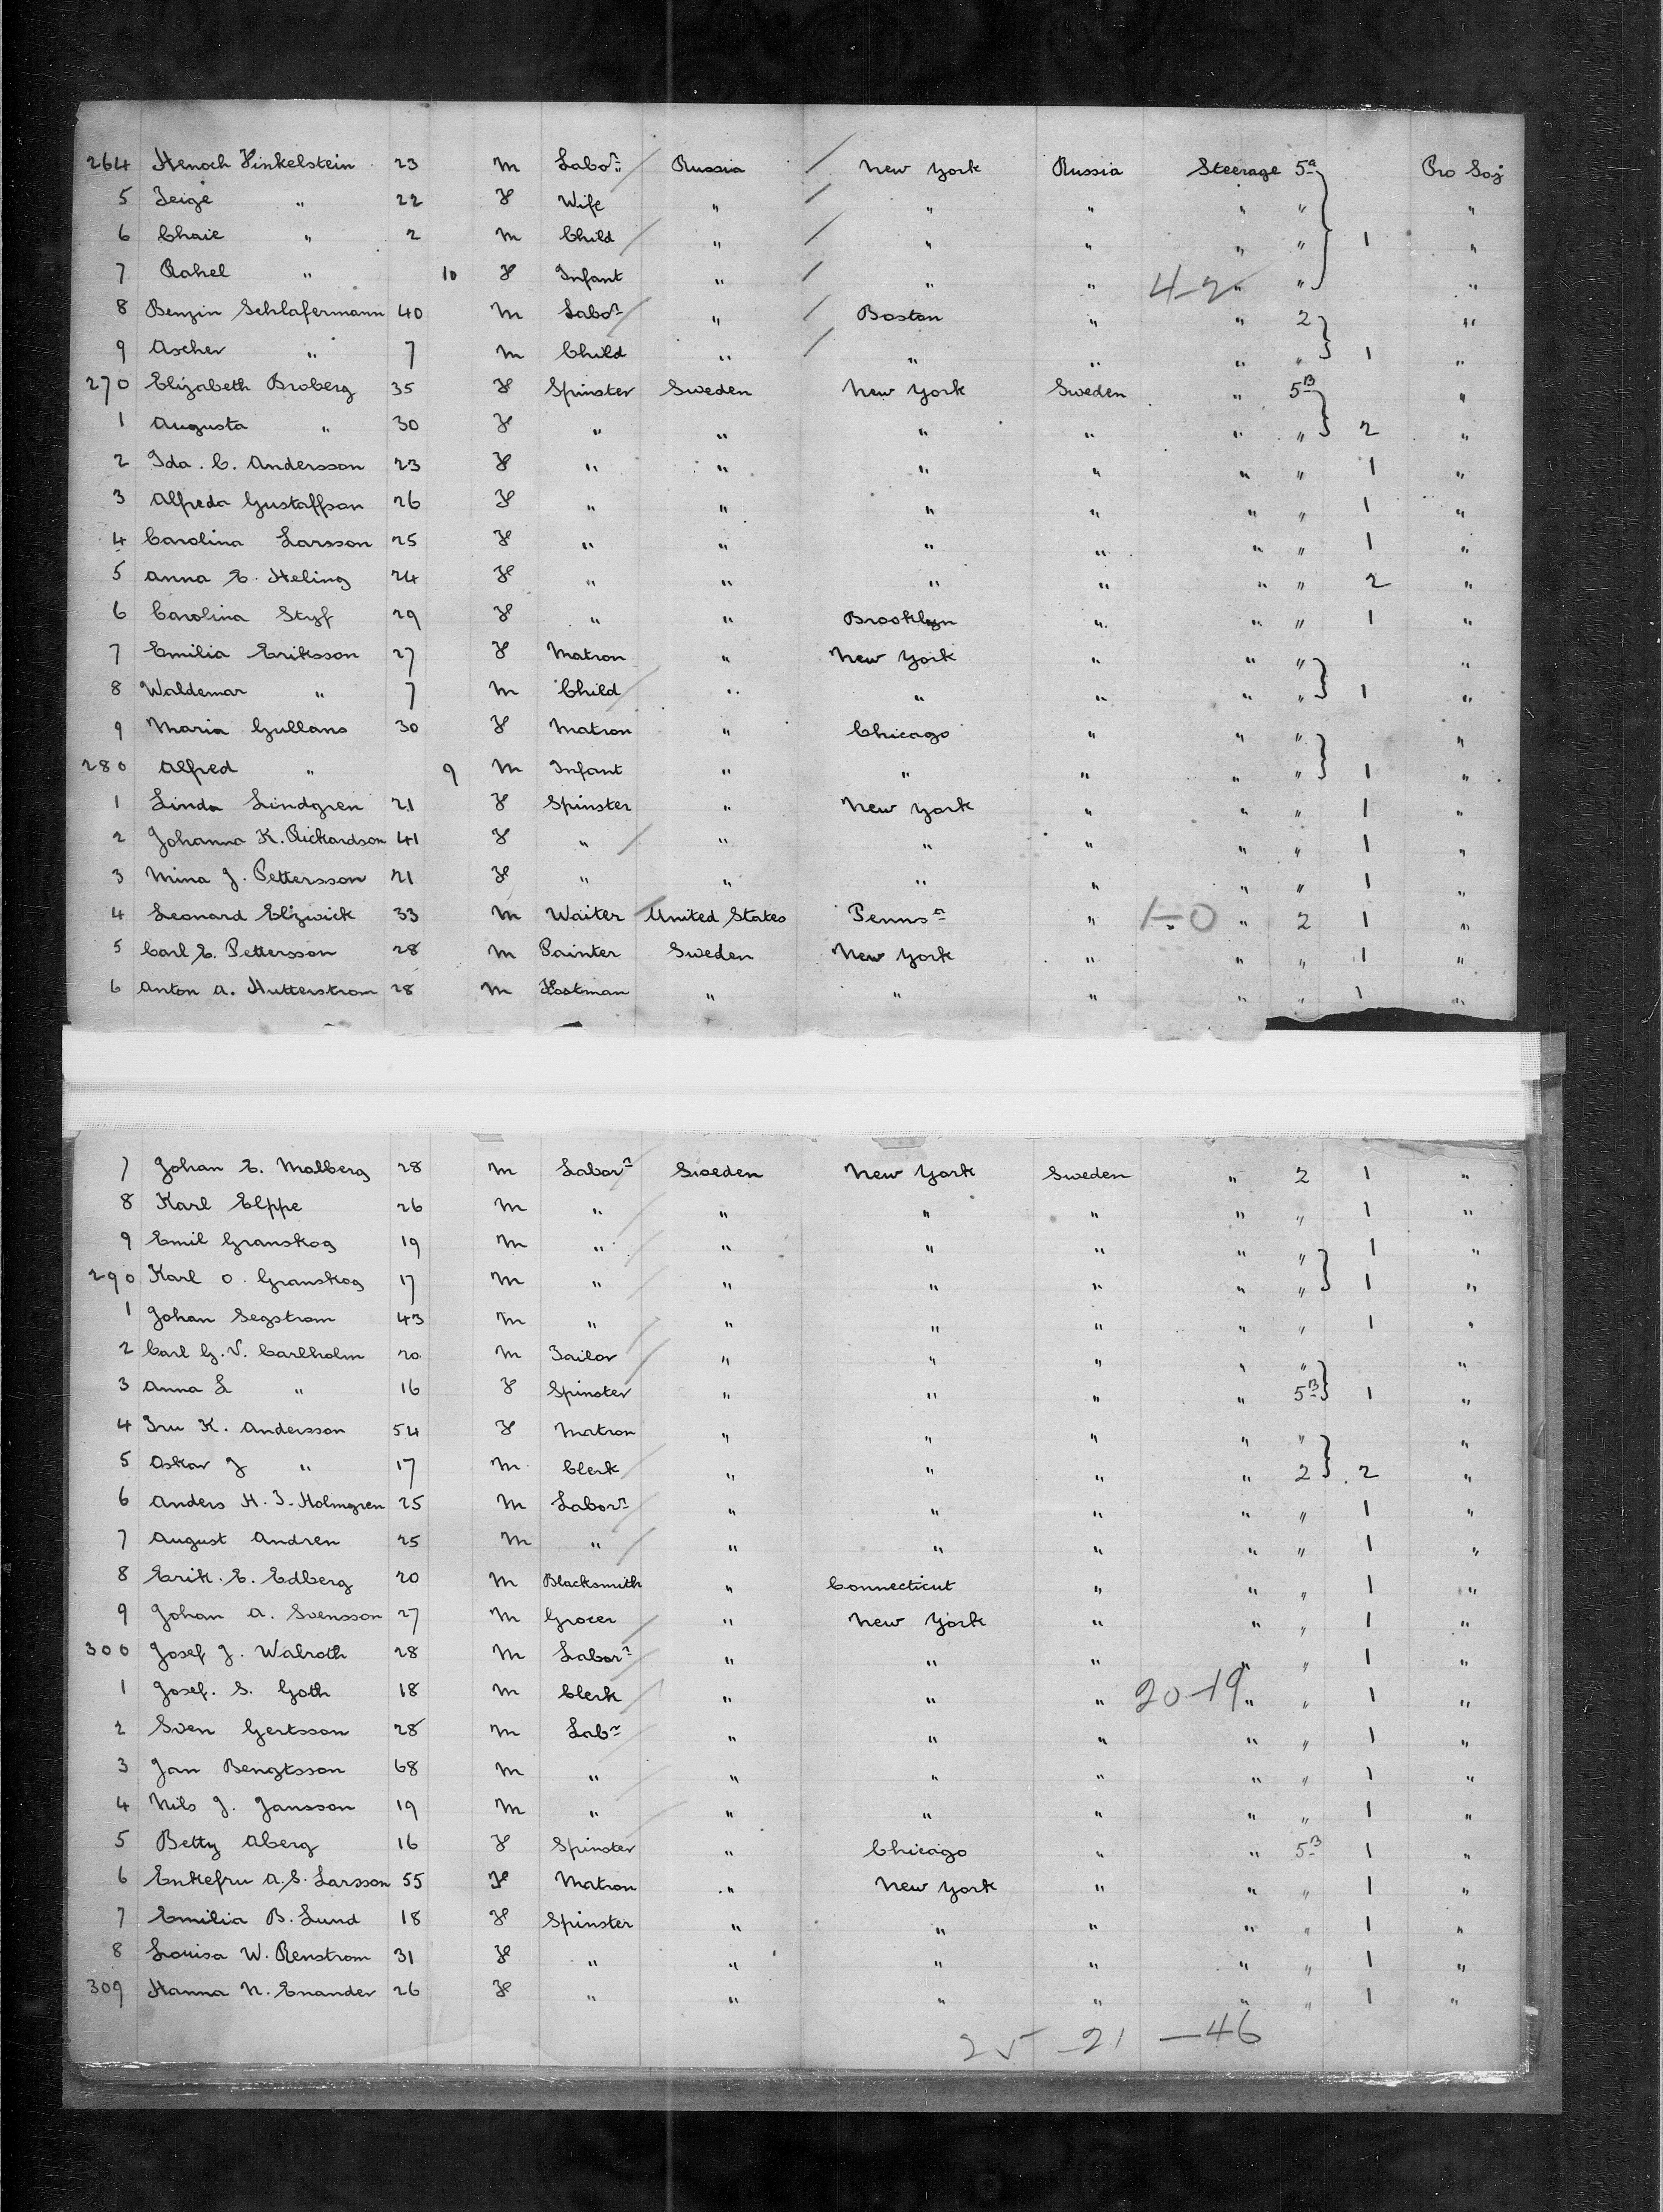 264 Henoch Finkelstein 23 M Labor Russia New York Russia Steerage 5a Pro Soj
5 Feige " 22 F Wife " " " " " "
6 Chaie " 2 M Child " " " " " 1 "
7 Rahel " 10 F Infant " " " 4-2 " " "
8 Benzin Schlafermann 40 M Labor " Boston " " 2 "
9 Ascher " 7 M Child " " " " " 1 "
270 Elizabeth Broberg 35 F Spinster Sweden New York Sweden " 5B "
1 Augusta " 30 F " " " " " " 2 "
2 Ida. C. Andersson 23 F " " " " " " 1 "
3 Alfreda Gustaffson 26 F " " " " " " 1 "
4 Carolina Larsson 25 F " " " " " " 1 "
5 Anna E. Heling 24 F " " " " " " 2 "
6 Carolina Styf 29 F " " Brooklyn " " " 1 "
7 Emilia Eriksson 27 F Matron " New York " " " "
8 Waldemar " 7 M Child " " " " " 1 "
9 Maria Gullans 30 F Matron " Chicago " " " "
280 Alfred " 9 M Infant " " " " " 1 "
1 Linda Lindgren 21 F Spinster " New York " " " 1 "
2 Johanna K. Rickardson 41 F " " " " " " 1 "
3 Mina J. Pettersson 21 F " " " " " " 1 "
4 Leonard Elzwick 33 M Waiter United States Penns a " 1-0 " 2 1 "
5 Carl E. Pettersson 28 M Painter Sweden New York " " " 1 "
6 Anton A. Hutterstrom 28 M Footman " " " " " 1 "
7 Johan E. Malberg 28 M Labor r Sweden New York Sweden " 2 1 "
8 Karl Elppe 26 M " " " " " " 1 "
9 Emil Granskog 19 M " " " " " " 1 "
290 Karl O. Granskog 17 M " " " " " " 1 "
1 Johan Segstrom 43 M " " " " " " 1 "
2 Carl G. V. Carlholm 20 M Tailor " " " " " "
3 Anna L " 16 F Spinster " " " " 5B 1 "
4 Fru K. Andersson 54 F Matron " " " " " "
5 Oskar J " 17 M Clerk " " " " 2 2 "
6 Anders H. T. Holmgren 25 M Labor r " " " " " 1 "
7 August Andren 25 M " " " " " " 1 "
8 Erik. E. Edberg 20 M Blacksmith " Connecticut " " " 1 "
9 Johan A. Svensson 27 M Grocer " New York " " " 1 "
300 Josef J. Walroth 28 M Labor r " " " " " 1 "
1 Josef. S. Goth 18 M Clerk " " " 20-19 " " 1 "
2 Sven Gertsson 28 M Lab r " " " " " 1 "
3 Jan Bengtsson 68 M " " " " " " 1 "
4 Nils J. Jansson 19 M " " " " " " 1 "
5 Betty Aberg 16 F Spinster " Chicago " " 5B 1 "
6 Enkefru A. S. Larsson 55 F Matron " New York " " " 1 "
7 Emilia B. Lund 18 F Spinster " " " " " 1 "
8 Louisa W. Renstrom 31 F " " " " " " 1 "
309 Hanna N. Enander 26 F " " " " " " 1 "
25 - 21 - 46